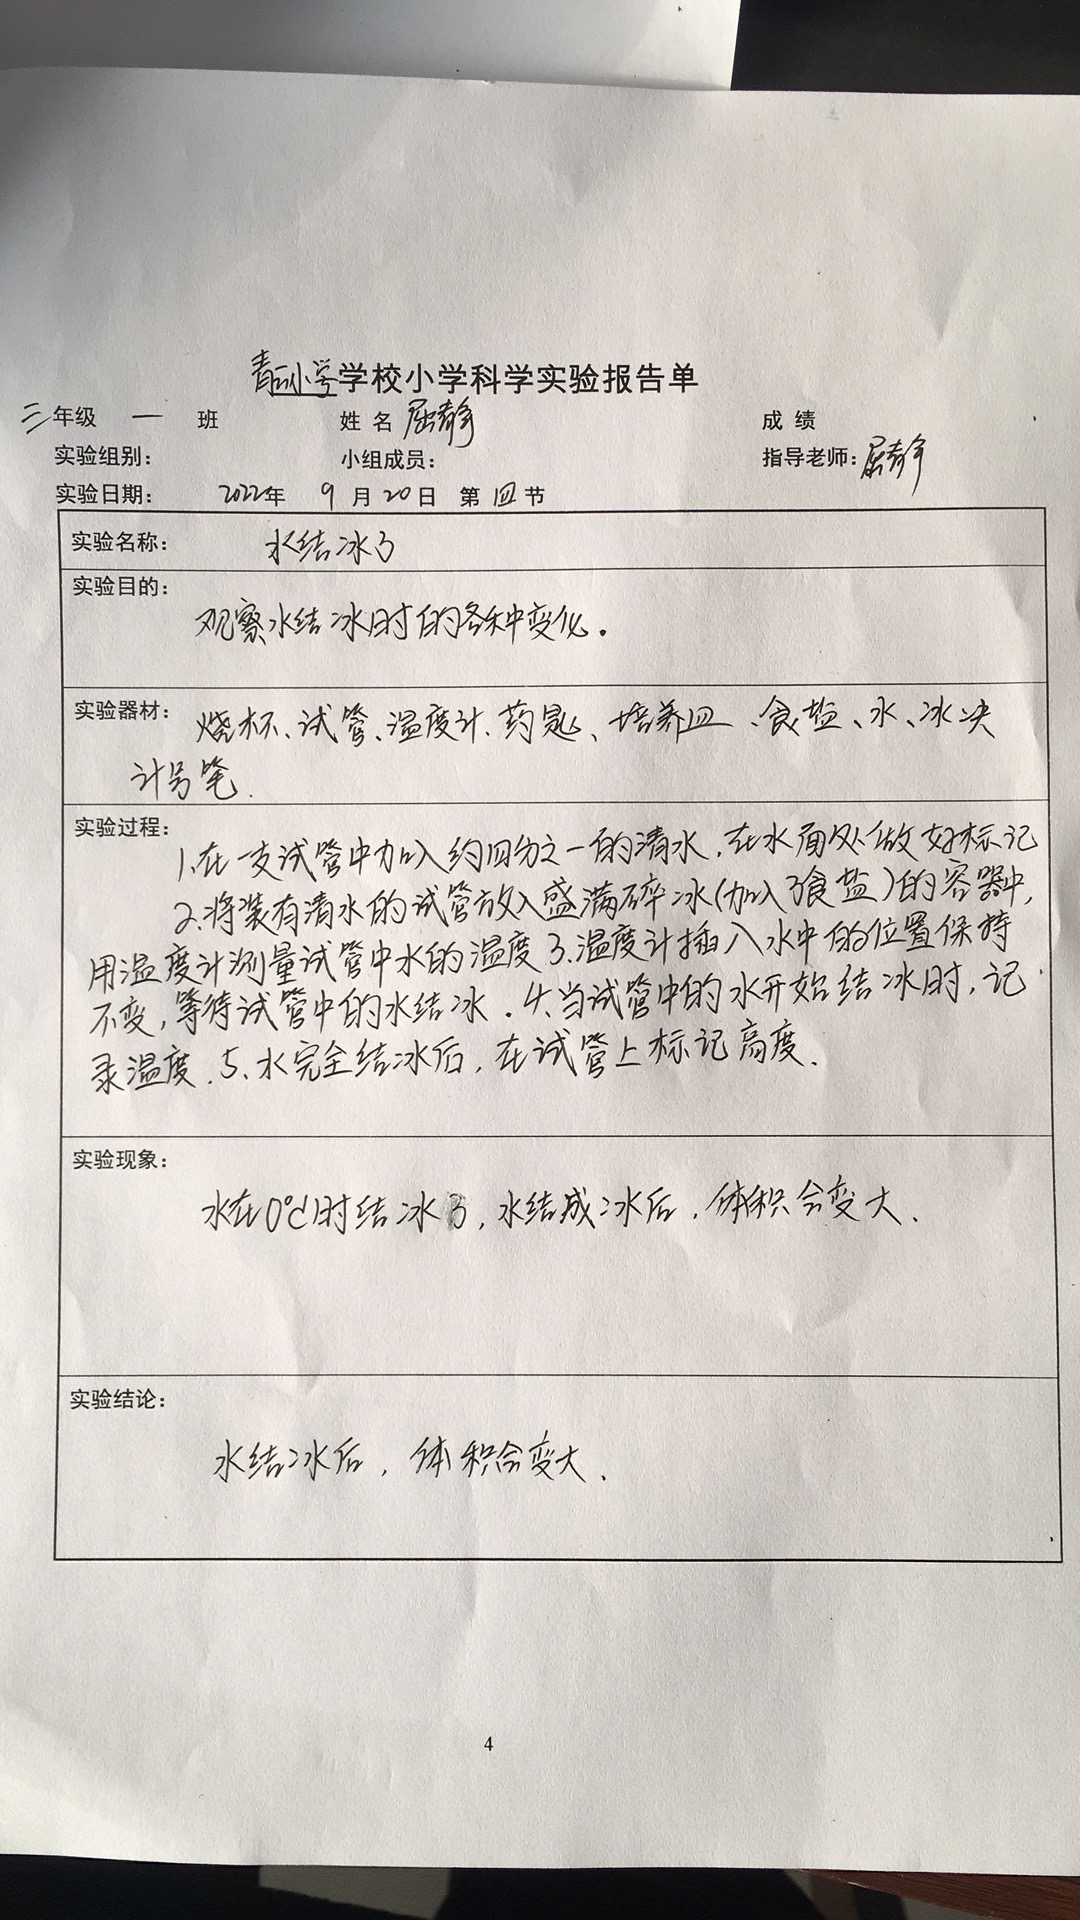 青石小学学校小学科学实验报告单
三年级 一 班 姓 名 屈静 成 绩
实验组别： 小组成员： 指导老师：屈静
实验日期： 2022年 9 月 20 日 第 四 节
实验名称： 水结冰了
实验目的：
观察水结冰时的各种变化。
实验器材： 烧杯、试管、温度计、药匙、培养皿、食盐、水、冰块
计号笔.
实验过程：
1.在一支试管中加入约四分之一的清水，在水面处做好标记
2.将装有清水的试管放入盛满碎冰(加入了食盐)的容器中，
用温度计测量试管中水的温度 3.温度计插入水中的位置保持
不变，等待试管中的水结冰. 4.当试管中的水开始结冰时，记
录温度. 5、水完全结冰后，在试管上标记高度.
实验现象：
水在0℃时结冰了，水结成冰后，体积会变大.
实验结论：
水结冰后，体积会变大.
4